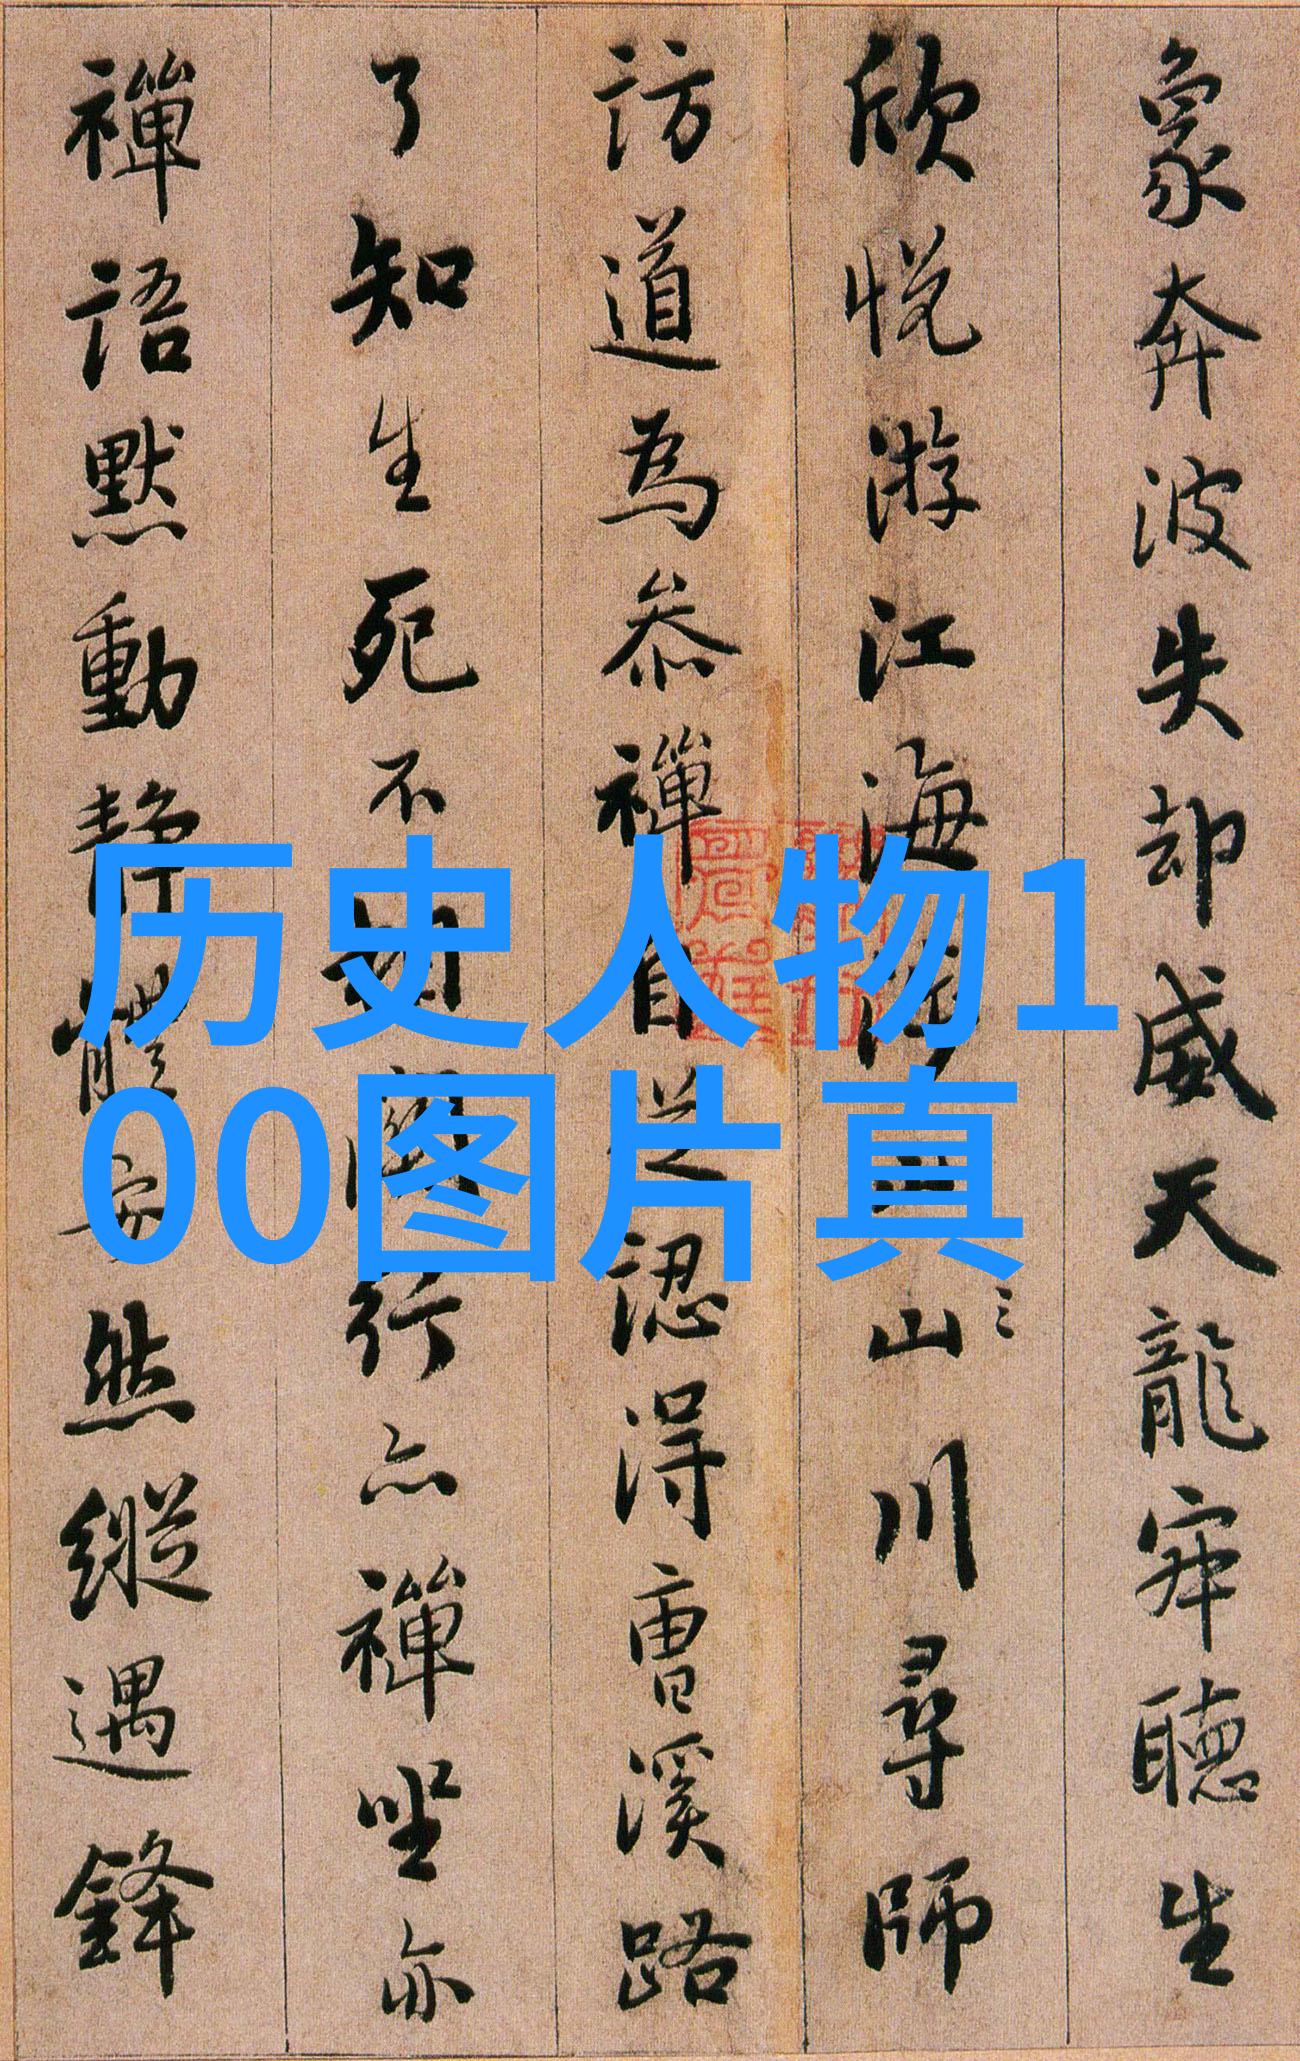 象奔波失却威天龍寂聽生
欣悅游江海山川尋師
訪道為叅禪自從認得曹溪路
了知生死不相關行亦禪坐亦
禪語默動静體安然縱遇鋒
历史人物1
00图片真